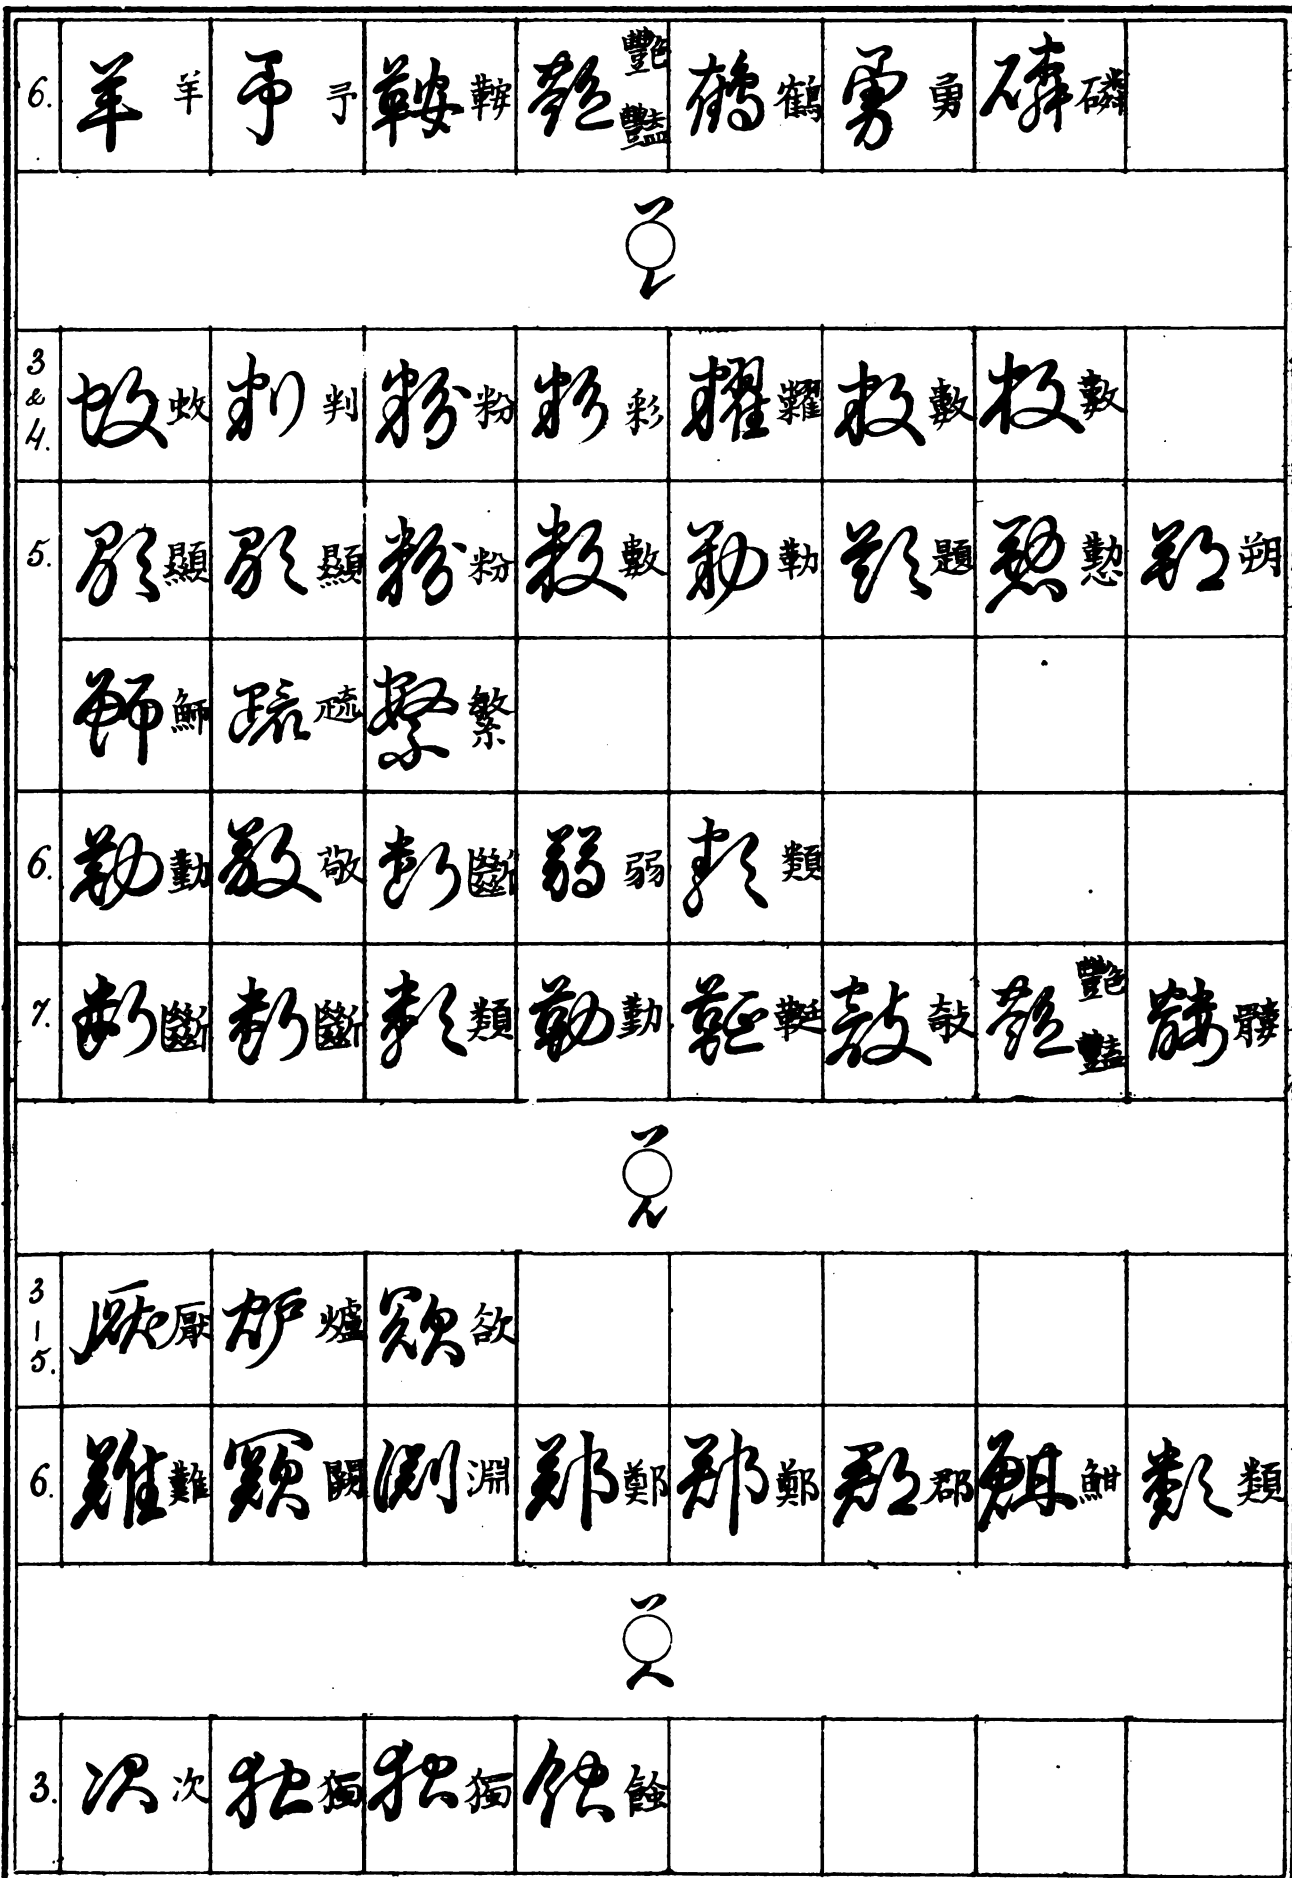 6. 羊 予 鞍 艷 豔 鶴 勇 磷
3 & 4. 蚊 判 粉 彩 糶 數 數
5. 顯 顯 粉 數 勒 題 懃 朔
鰤 疏 繁
6. 勤 敬 斷 弱 類
7. 斷 斷 類 勤 鞋 敲 艷 豔 髏
3–5. 厭 爐 欲
6. 難 闕 淵 鄭 鄭 郡 鮒 類
3. 次 獨 獨 蝕